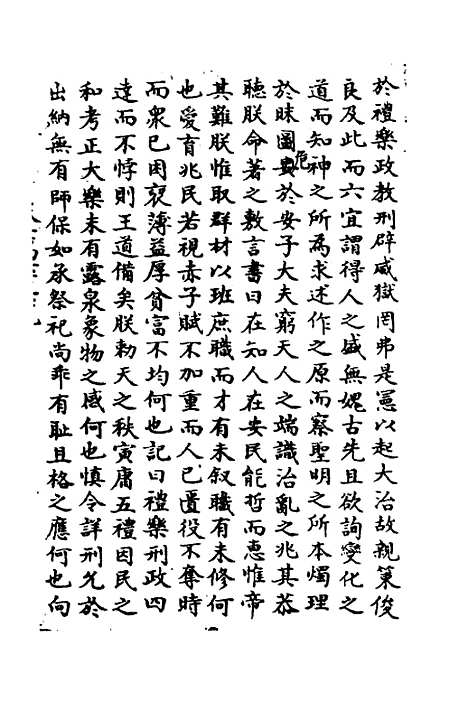 於禮樂政教刑辟咸獄罔弗是憲以起大治故親策俊
良及此而六宜謂得人之盛無媿古先且欲詢變化之
道而知神之所為求述作之原而察聖明之所本燭理
於昧圖安危於安子大夫窮天人之端識治亂之兆其恭
聽朕命著之敷言書曰在知人在安民能哲而惠惟帝
其難朕惟取群材以班庶職而才有未叙職有未修何
也愛育兆民若視赤子賦不加重而人已匱役不奪時
而衆已困裒薄益厚貧富不均何也記曰禮樂刑政四
達而不悖則王道備矣朕勑天之秩寅庸五禮因民之
和考正大樂未有露泉象物之感何也慎令詳刑允於
出納無有師保如承祭祀尚乖有耻且格之應何也向